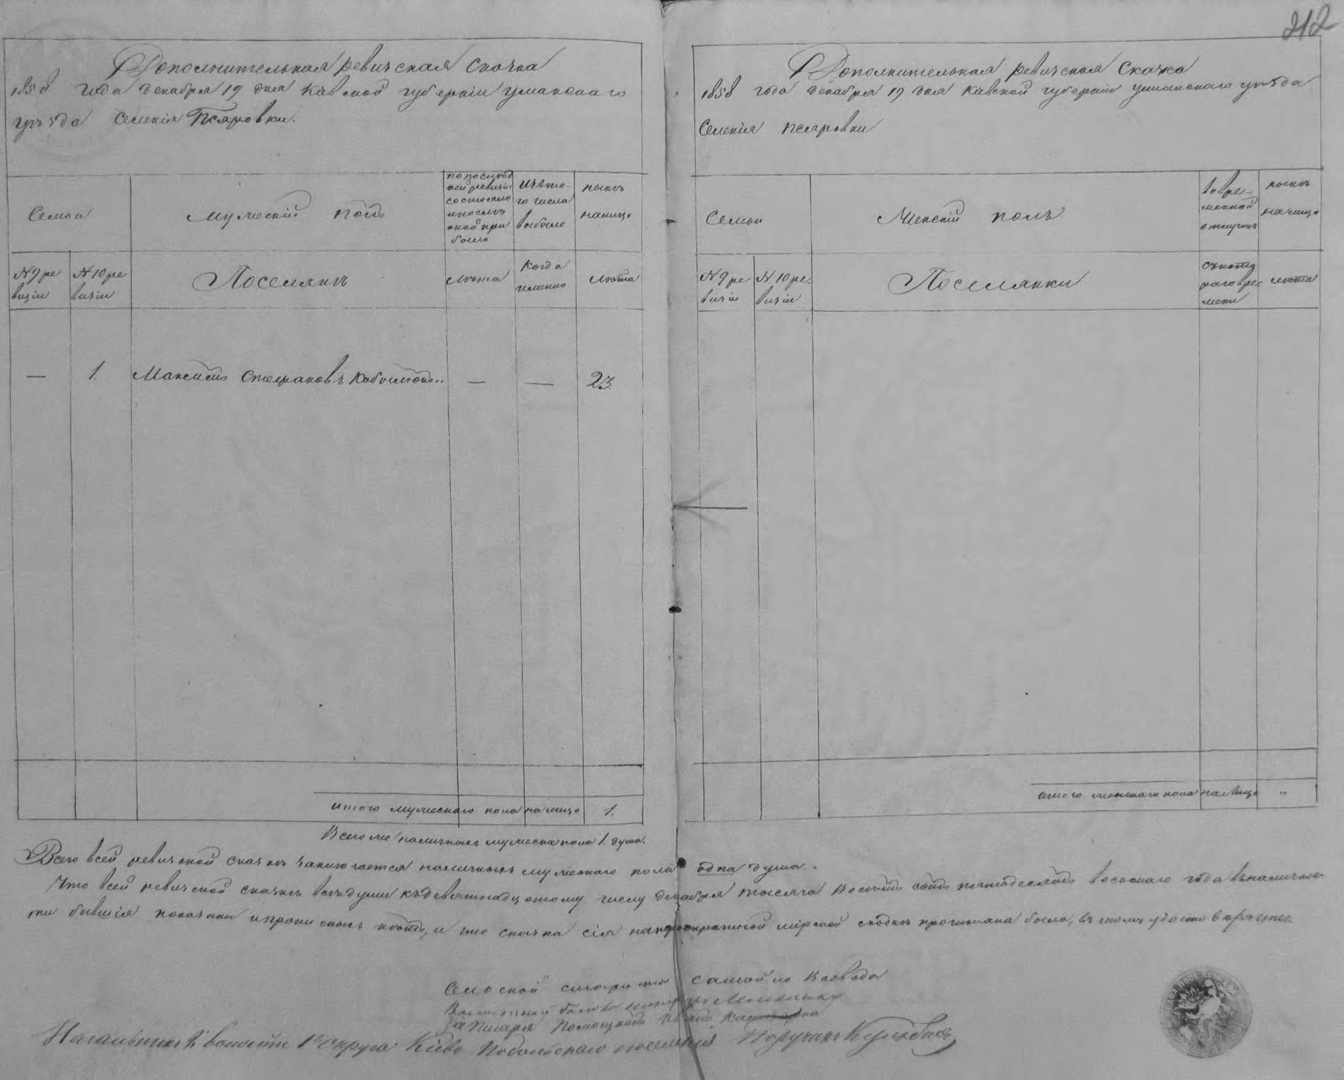 212
Дополнительная ревизская сказка
1858 года декабря 19 дня Киевской губернии Уманского
уезда селения Псяровки.
Семьи
Мужеский пол
по последней ревизии состояло и после оной прибыло
Из того числа выбыло
ныне налицо
№ 9 ревизии
№ 10 ревизии
Поселяне
лета
когда именно
лета
— 1. Максим Стефанов — — 23.
итого мужеского пола налицо 1.
Всего же наличных мужеска пола 1 душа.
Дополнительная ревизская сказка
1858 года декабря 19 дня Киевской губернии Уманского уезда
селения Псяровки
Семьи
Женский пол
в временной отлучке
ныне налицо
№ 9 ревизии
№ 10 ревизии
Поселянки
с какого времени
лета
итого женского пола налицо „
Всего в сей ревизской сказке заключается наличных мужеского пола одна душа.
Что в сей ревизской сказке все души к девятнадцатому числу декабря тысяча восемьсот пятьдесят восьмого года в наличности
бывшие показаны и прописных нет, и что сказка сия на мирской сходке прочитана была, в том удостоверяем.
Начальник волости 1 округа Киево Подольского поселения Поручик